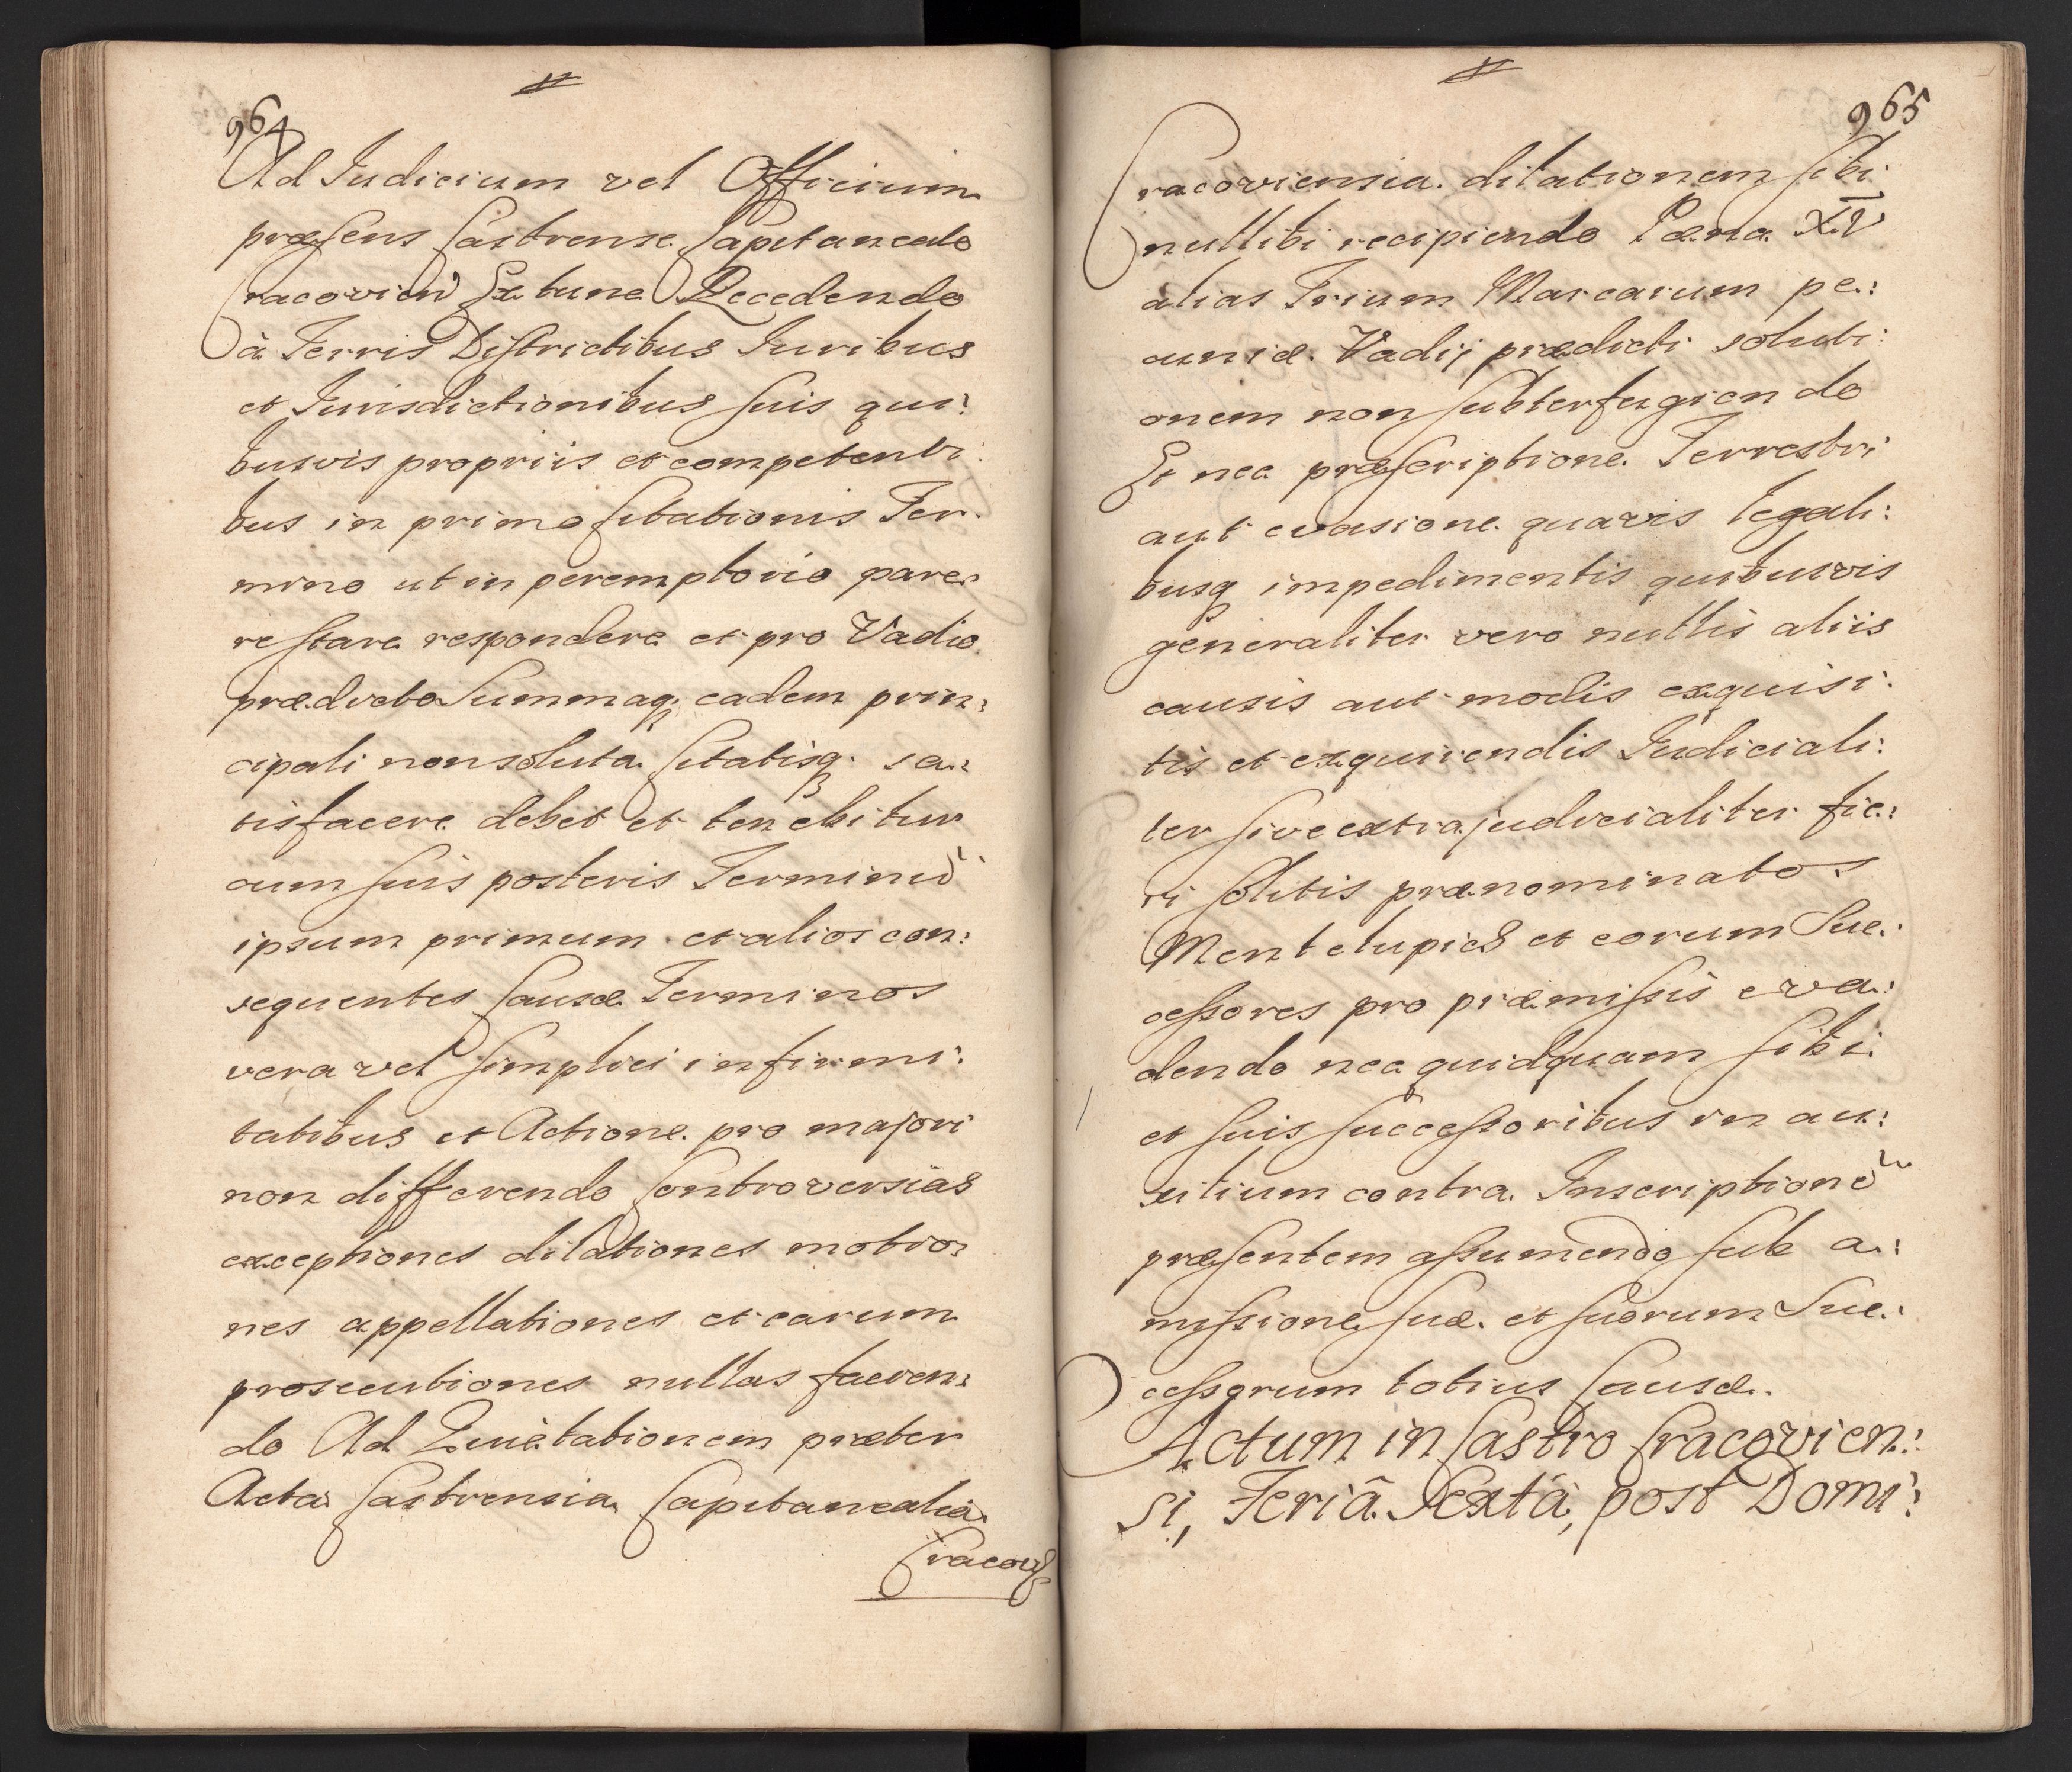 964
Ad Judicium vel Officium
præsens Castrense Capitaneale
Cracovien Ex tunc Recedendo
à Terris Districtibus Juribus
et Jurisdictionibus suis qui:
busvis propriis et competenti:
bus in primo Citationis Ter:
mino ut in peremptorio pare:
re stare respondere et pro Vadio
prædicto Summaq, eadem prin:
cipali non soluta Citatisq, sa:
tisfacere debet et tenebitur
cum suis posteris Terminu
ipsum primum et alios con:
sequentes Causæ Terminos
vera vel simplici infirmi:
tatibus et Actione pro majori
non differendo Controversias
exceptiones dilationes motio:
nes appellationes et earum
prosecutiones nullas facien:
do Ad Quietationem præter
Acta Castrensia Capitanealia
Cracov
965
Cracoviensia dilationem sibi
nullibi recipiendo Pœna XIV
alias Trium Marcarum pe:
cuniæ Vadij prædicti soluti:
onem non subterfugiendo
Et nec præscriptione Terrestri
aut evasione quavis legali:
busq impedimentis quibusvis
generaliter vero nullis aliis
causis aut modis exquisi:
tis et exquirendis Judiciali:
ter sive extrajudicialiter fie:
ri solitis prænominatos
Montelupios et eorum Suc:
cessores pro præmissis eva:
dendo nec quidquam sibi
et suis successoribus in au:
xilium contra Inscriptione
præsentem assumendo sub a:
missione suæ et suorum Suc:
cessorum totius Causæ.
Actum in Castro Cracovien:
si, Feriâ Sextâ, post Domi: